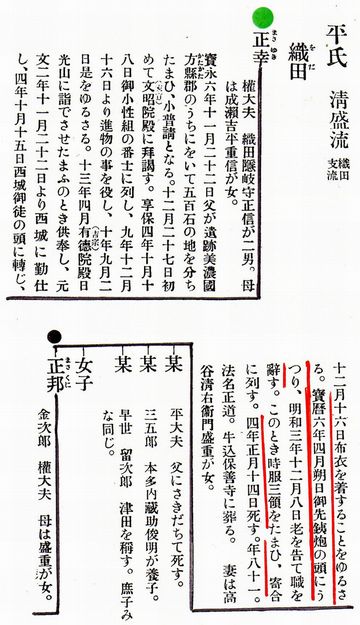 平氏 清盛流 織田支流
織田
正幸
まさゆき
權大夫 織田隱岐守正信が二男。母
は成瀬吉平重信が女。
寳永六年十一月二十二日父が遺跡美濃國
方縣郡のうちにをいて五百石の地を分ち
かたかた
たまひ、小普請となる。十二月二十七日初
めて文昭院殿に拜謁す。享保四年十月十
八日御小性組の番士に列し、九年十二月
十六日より進物の事を役し、十年九月二
日是をゆるさる。十三年四月有德院殿日
光山に詣でさせたまふのとき供奉し、元
文二年十一月二十二日より西城に勤仕
し、四年十月十五日西城御徒の頭に轉じ、
十二月十六日布衣を着することをゆるさ
る。寳曆六年四月朔日御先銕炮の頭にう
つり、明和三年十二月八日老を告て職を
辭す。このとき時服三領をたまひ、寄合
に列す。四年正月十四日死す。年八十一。
法名正道。牛込保善寺に葬る。 妻は高
谷清右衞門盛重が女。
某 平大夫 父にさきだちて死す。
某 三五郎 本多内藏助俊明が養子。
某 早世 留次郎 津田を稱す。庶子み
な同じ。
女子
正邦
まさくに
金次郎 權大夫 母は盛重が女。